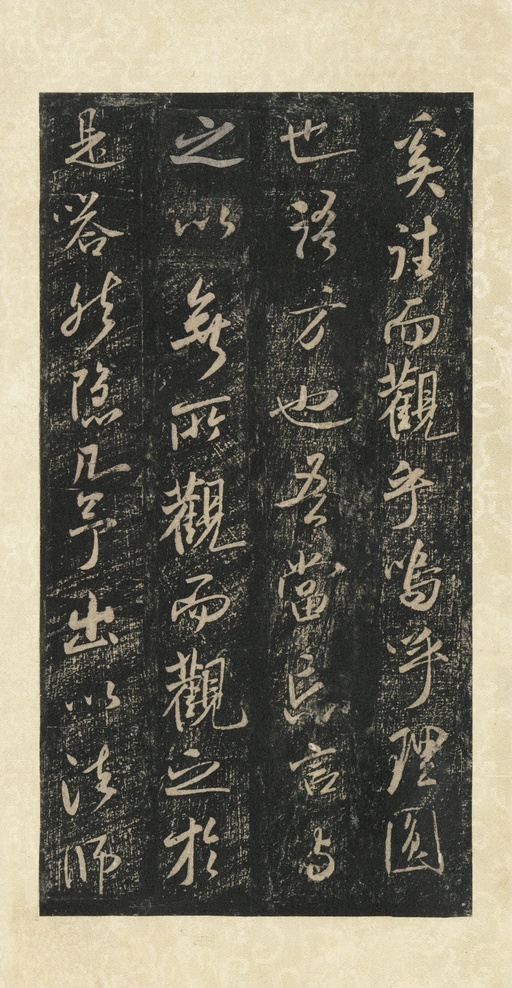 奚往而觀乎嗚呼理圓
也語方也吾當忘言与
之以無所觀而觀之於
是嗒然隱几予出以法師